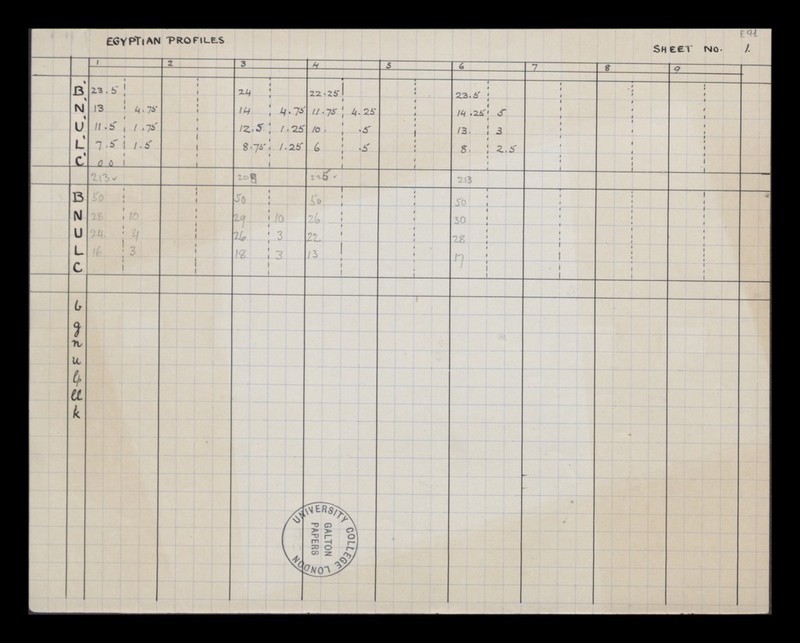 E91
EGYPTIAN PROFILES
SHEET NO. 1.
1 2 3 4 5 6 7 8 9
B' 23.5 24 22.25 23.5
N' 13 4.75 14 4.75 11.75 4.25 14.25 5
U' 11.5 1.75 12.5 1.25 10 .5 13. 3
L' 7.5 1.5 8.75 1.25 6 .5 8. 2.5
C' 0 0
213 213
B 50 50 50 50
N 28 10 29 10 26 30
U 24 4 26 3 22 28
L 16 3 18 3 13 17
C
b
g
n
u
ll
k
UNIVERSITY COLLEGE LONDON
GALTON
PAPERS